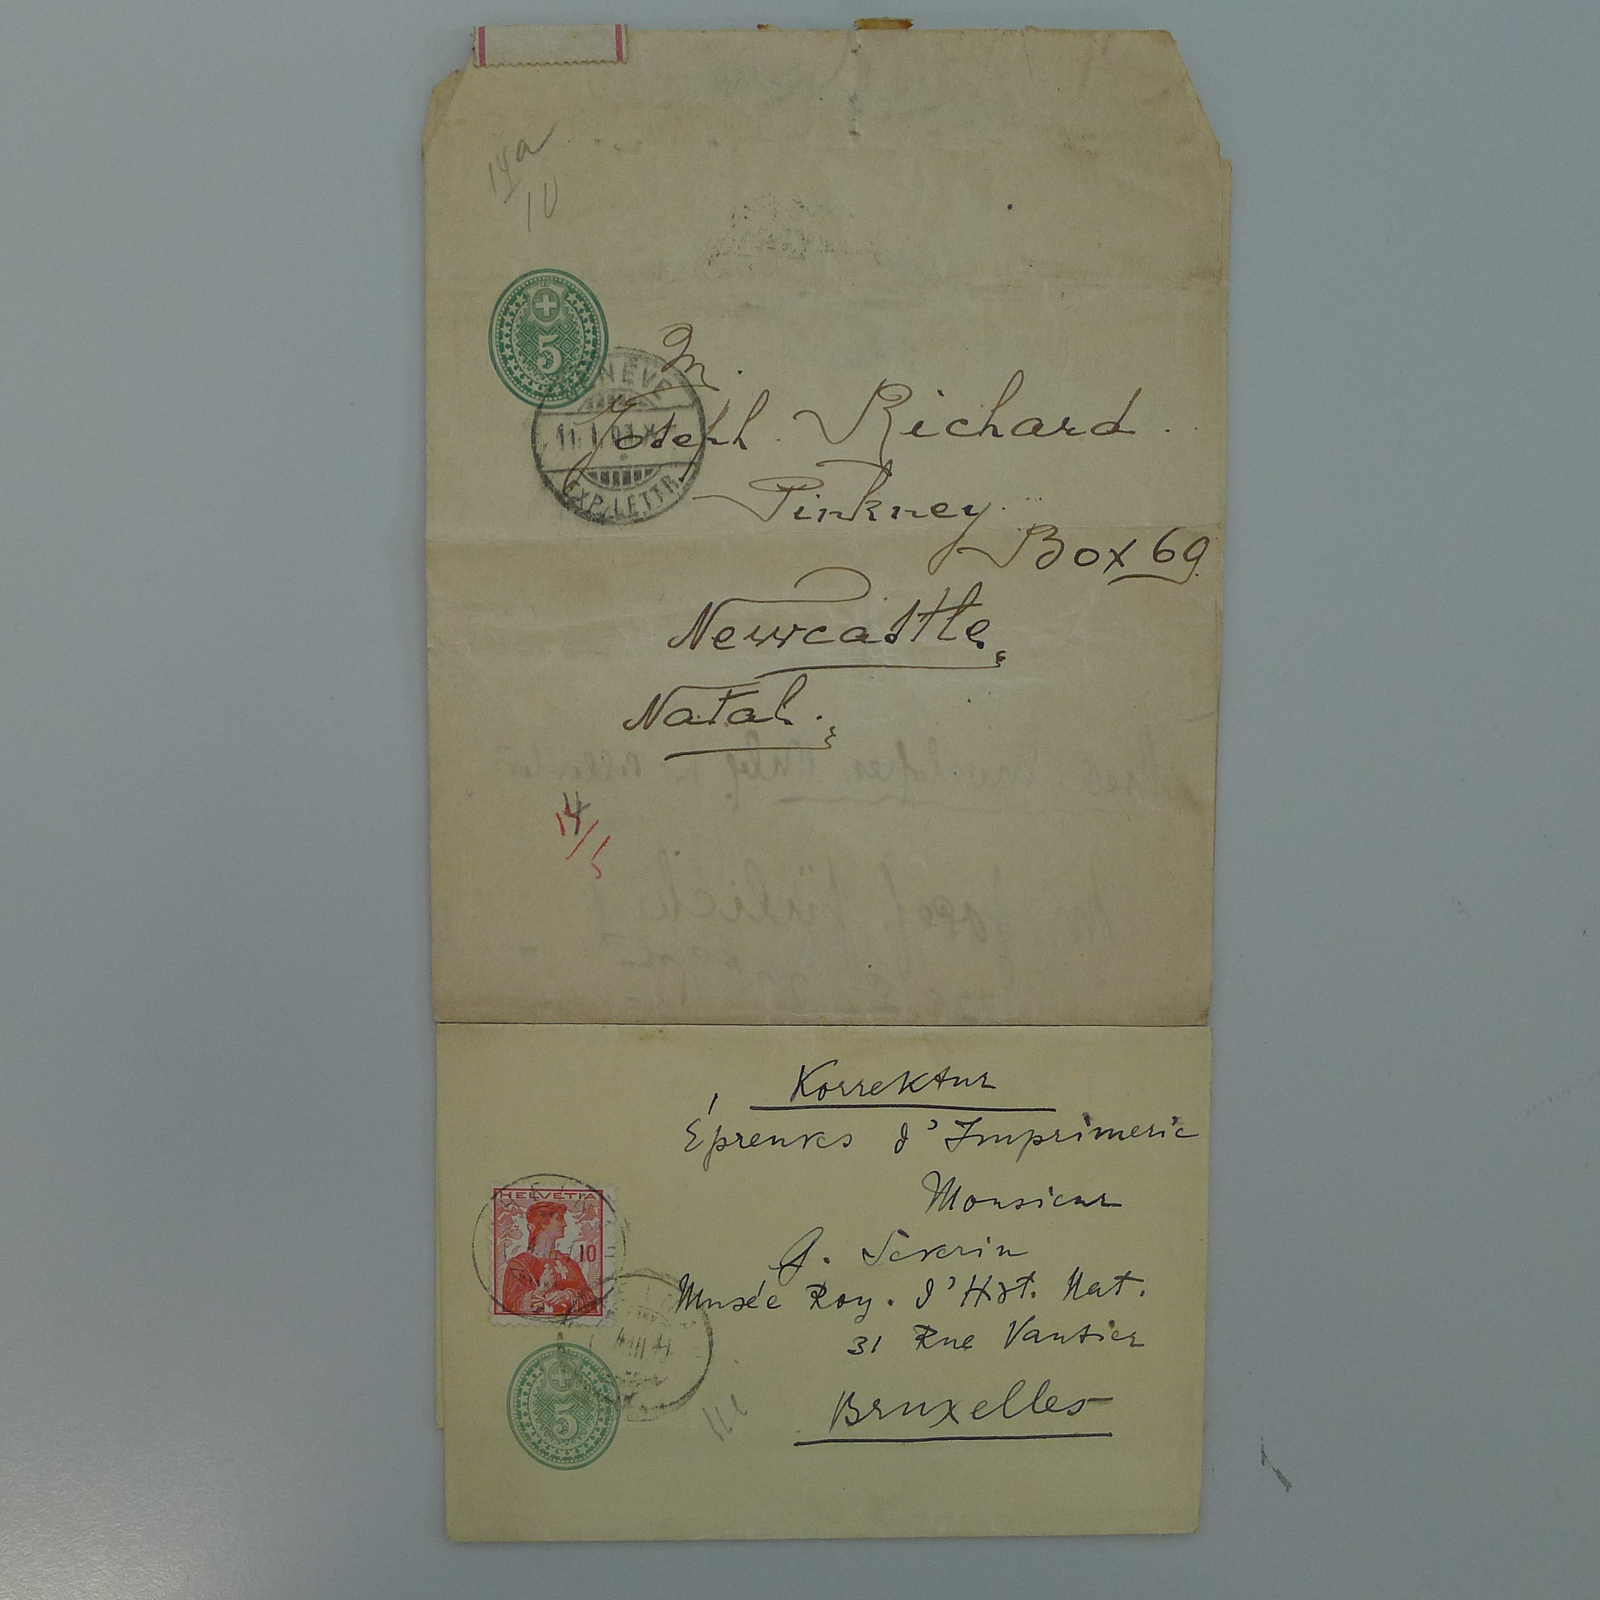 14a
10
5
GENÈVE
EXP. LETTR.
M.
Joseph Richard.
Pinkney.
Box 69
Newcastle
Natal.
14/5
Korrektur
Épreuves d'Imprimerie
Monsieur
G. Severin
Musée Roy. d'Hist. Nat.
31 Rue Vautier
Bruxelles
HELVETIA
10
5